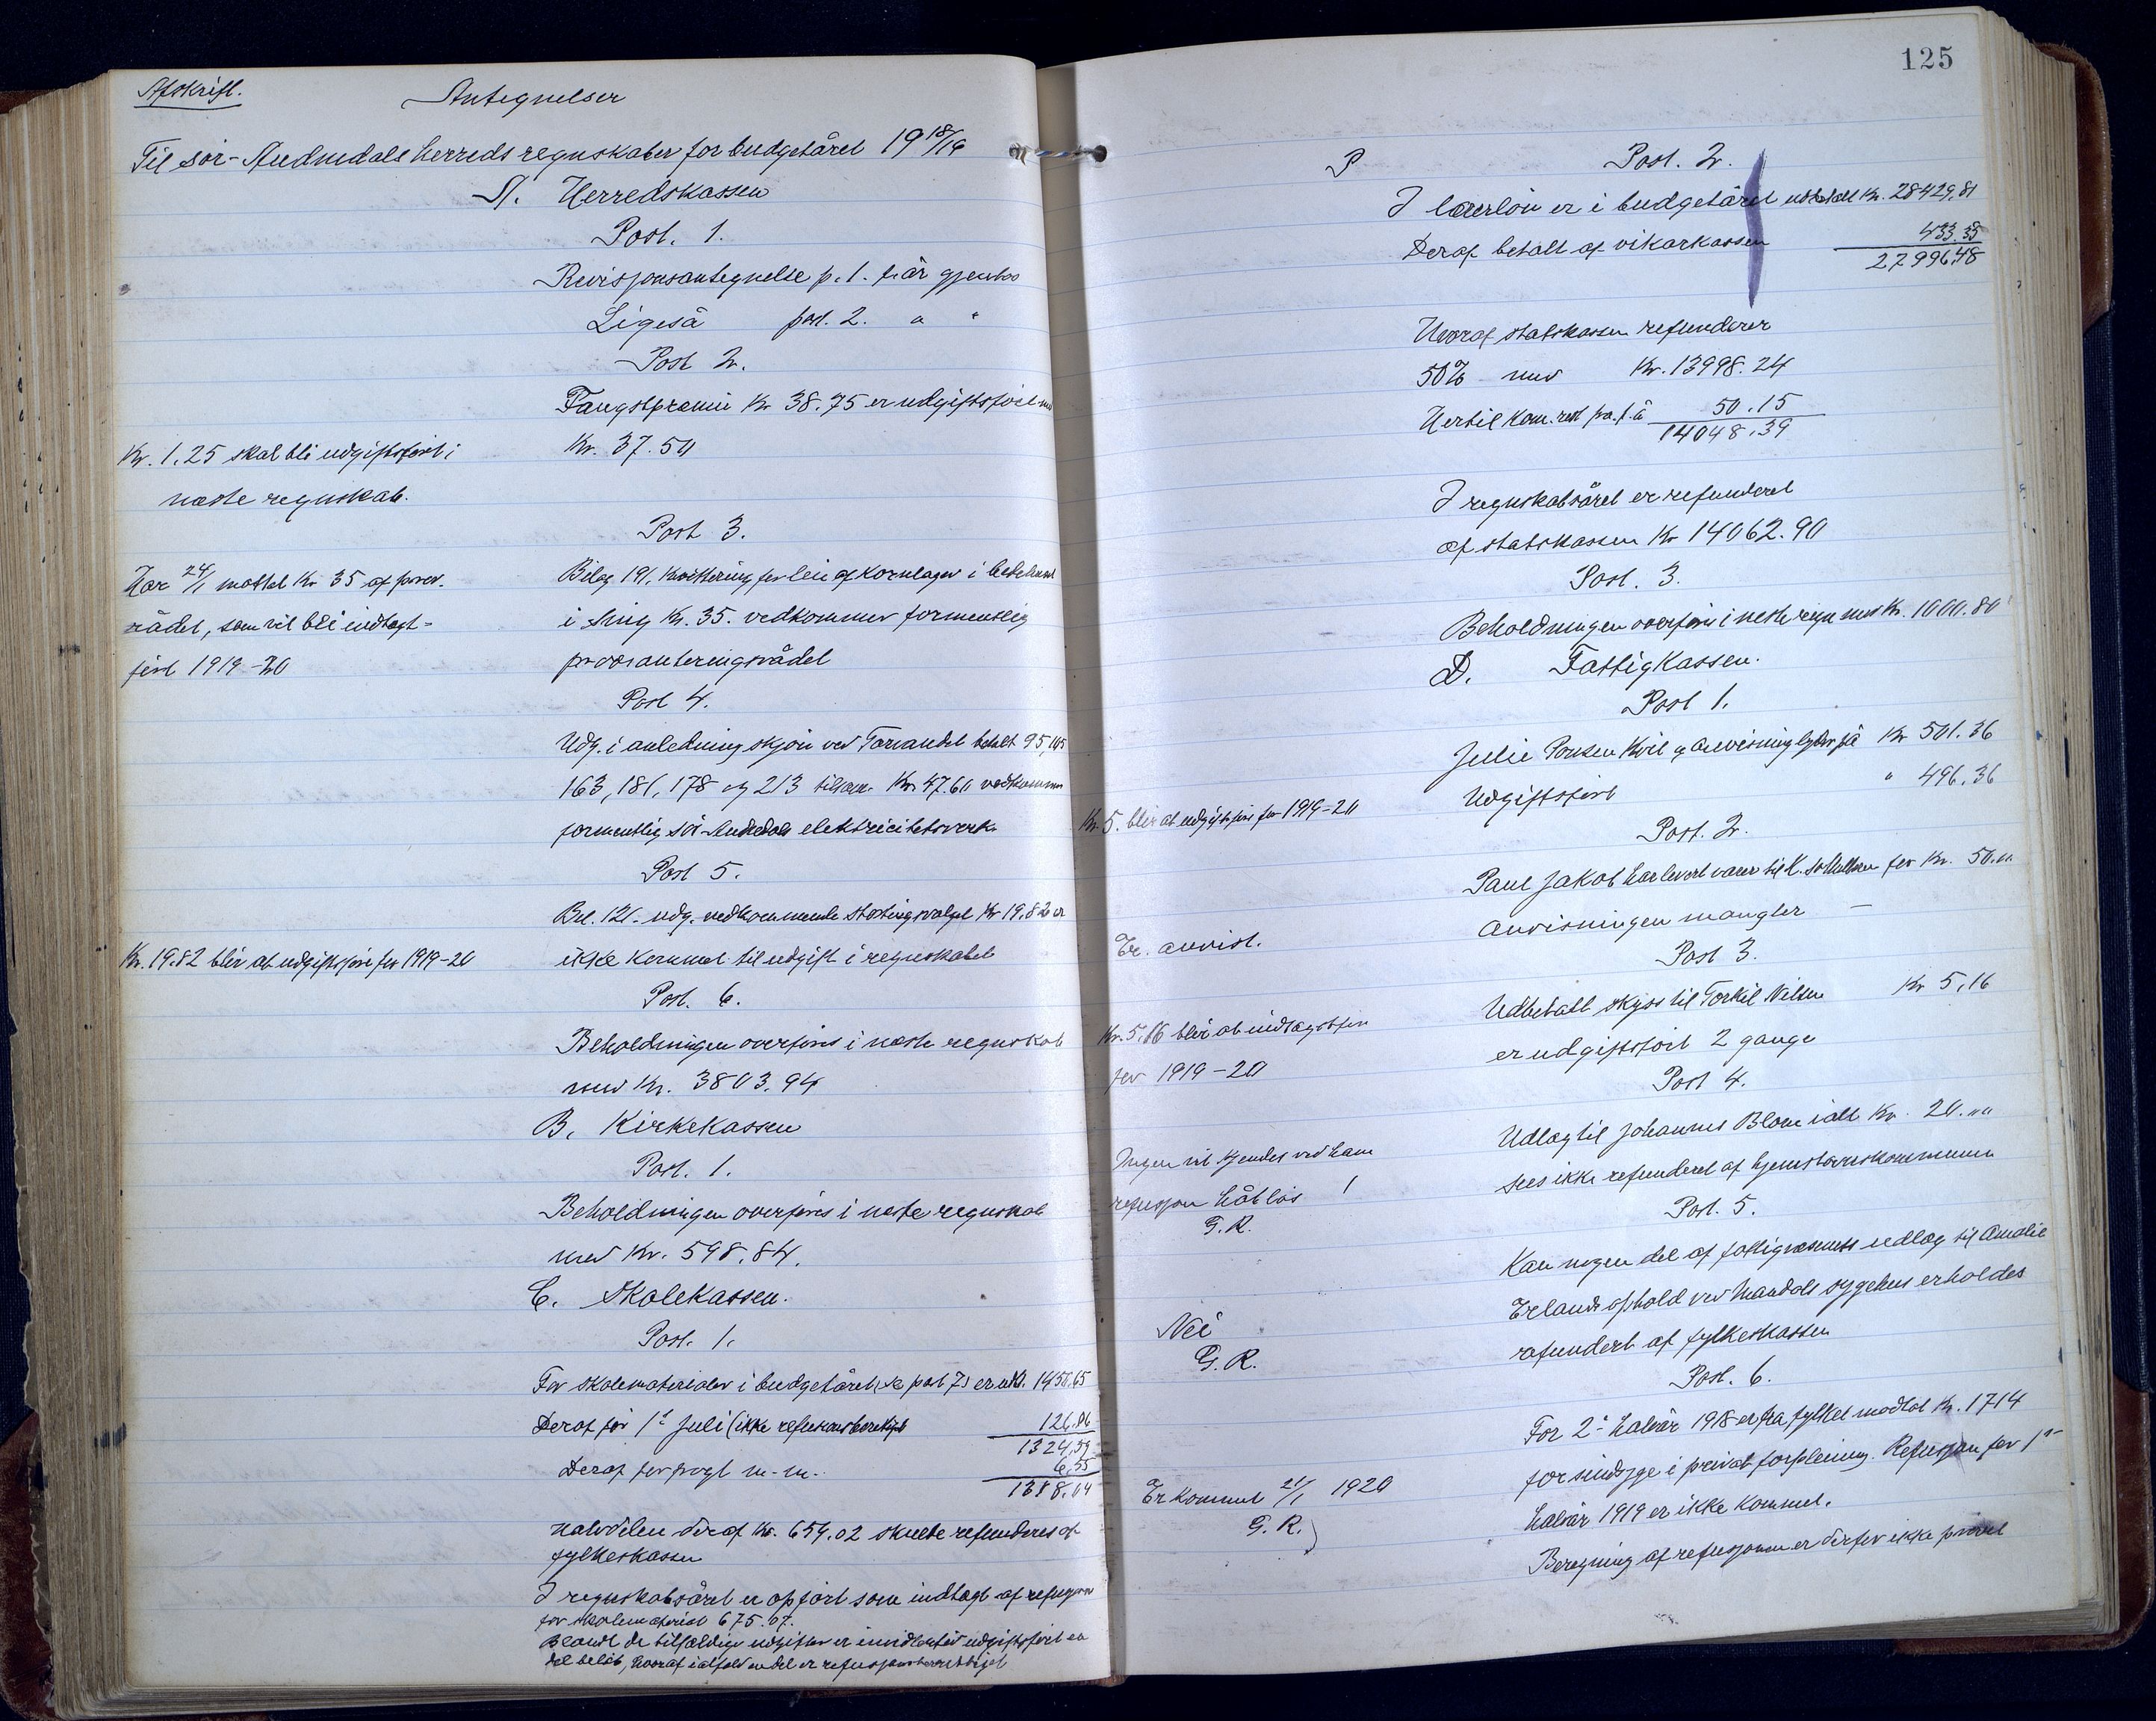 Afskrift.
Antegnelser
Til sör-Audnedals herreds regnskaber for budgetåret 19 18/19
A. Herredskassen
Post. 1.
Revisjonsantegnelse p. 1. f. år gjentas
Ligeså post. 2. " "
Post 2.
Fangstpremie Kr 38.75 er udgiftsfört med
Kr. 37.50
Kr. 1.25 skal bli udgiftsfört i
næste regnskab.
Post 3.
Bilag 191. Kvittering for leie af kornlager i bedehuset
i Snig Kr. 35. vedkommer formentlig
provianteringsrådet
Har 24/1 mottat Kr 35 af prov.
rådet, som vil bli indtægt-
fört 1919-20
Post 4.
Udg. i anledning skjön ved Tarvandet betalt 95, 145
163, 181, 178 og 213 tilsam. Kr. 47.60 vedkommer
formentlig sör-Audnedals elektricitetsverk
Post 5.
Bil. 121. udg. vedkommende stortingsvalget Kr 19.82 er
ikke kommet til udgift i regnskabet
Kr. 19.82 blir at udgiftsföre for 1919-20
Post. 6.
Beholdningen overföres i næste regnskab
med Kr. 3803.94
B. Kirkekassen
Post. 1.
Beholdningen overföres i neste regnskab
med Kr. 598.84.
C. Skolekassen.
Post. 1.
For skolematerialer i budgetåret (se post 7) er udb. 1450.65
Deraf för 1ste Juli (ikke refusionsberettiget 126.06
1324.59
Deraf for fragt m.m. 6.55
1318.04
Halvdelen deraf Kr. 659.02 skulde refunderes af
fylkeskassen
I regnskabsåret er opfört som indtægt af refusjon
for skolemateriel 675.07.
Blandt de tilfældige udgifter er imidlertid udgiftsfört en
del belöb, hvoraf ialfald en del er refusjonsberettiget
125
P Post. 2.
I lærerlön er i budgetåret udbetalt Kr. 28429.81
Deraf betalt af vikarkassen 433.33
27996.48
Hvoraf statskassen refunderer
50% med Kr. 13998.24
Hertil kom. rest fra f. å 50.15
14048.39
I regnskabsåret er refunderet
af statskassen Kr 14062.90
Post. 3.
Beholdningen overföres i neste regn med Kr. 1000.80
D. Fattigkassen.
Post 1.
Julie Tonsen Kvil g anvisning lyder på Kr 501.36
Udgiftsfört " 496.36
Kr. 5. blir at udgiftsföre for 1919-20
Post. 2.
Paul Jakob har levert varer til K. for Kr. 50.00
Anvisningen mangler —
Er anvist.
Post 3.
Udbetalt skyss til Torkil Nilsen Kr 5.16
er udgiftsfört 2 gange
Kr. 5.16 blir at indtægtsföre
for 1919-20
Post 4.
Udlæg til Johannes Blom ialt Kr. 20.00
sees ikke refunderet af hjemstavnskommunen
Ingen vil kjendes ved ham
refusjon håblös !
G. R.
Post. 5.
Kan nogen del af fattigvæsenets udlæg til Amalie
Erlands ophold ved Mandals sygehus erholdes
refundert af fylkeskassen
Nei
G. R.
Post. 6.
For 2det halvår 1918 er fra fylket modtat Kr. 1714
for sindsyge i privat forpleining. Refusjon for 1ste
halvår 1919 er ikke kommet.
Beregning af refusjonen er derfor ikke prövet
Er kommet 21/1 1920
G. R.